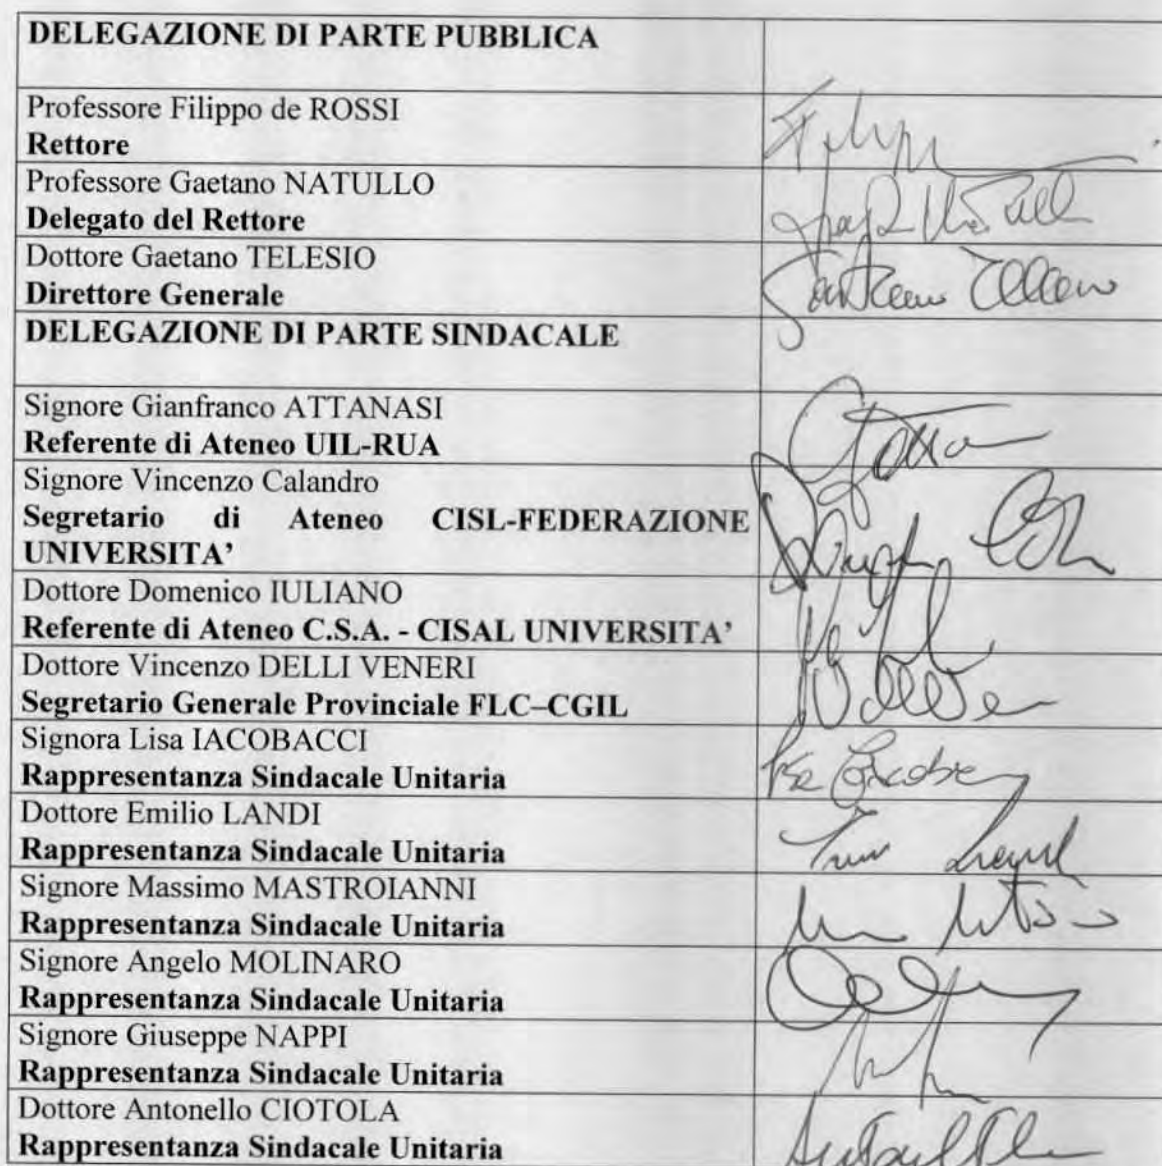 DELEGAZIONE DI PARTE PUBBLICA
Professore Filippo de ROSSI
Rettore
Professore Gaetano NATULLO
Delegato del Rettore
Dottore Gaetano TELESIO
Direttore Generale
DELEGAZIONE DI PARTE SINDACALE
Signore Gianfranco ATTANASI
Referente di Ateneo UIL-RUA
Signore Vincenzo Calandro
Segretario di Ateneo CISL-FEDERAZIONE
UNIVERSITA’
Dottore Domenico IULIANO
Referente di Ateneo C.S.A. - CISAL UNIVERSITA’
Dottore Vincenzo DELLI VENERI
Segretario Generale Provinciale FLC–CGIL
Signora Lisa IACOBACCI
Rappresentanza Sindacale Unitaria
Dottore Emilio LANDI
Rappresentanza Sindacale Unitaria
Signore Massimo MASTROIANNI
Rappresentanza Sindacale Unitaria
Signore Angelo MOLINARO
Rappresentanza Sindacale Unitaria
Signore Giuseppe NAPPI
Rappresentanza Sindacale Unitaria
Dottore Antonello CIOTOLA
Rappresentanza Sindacale Unitaria